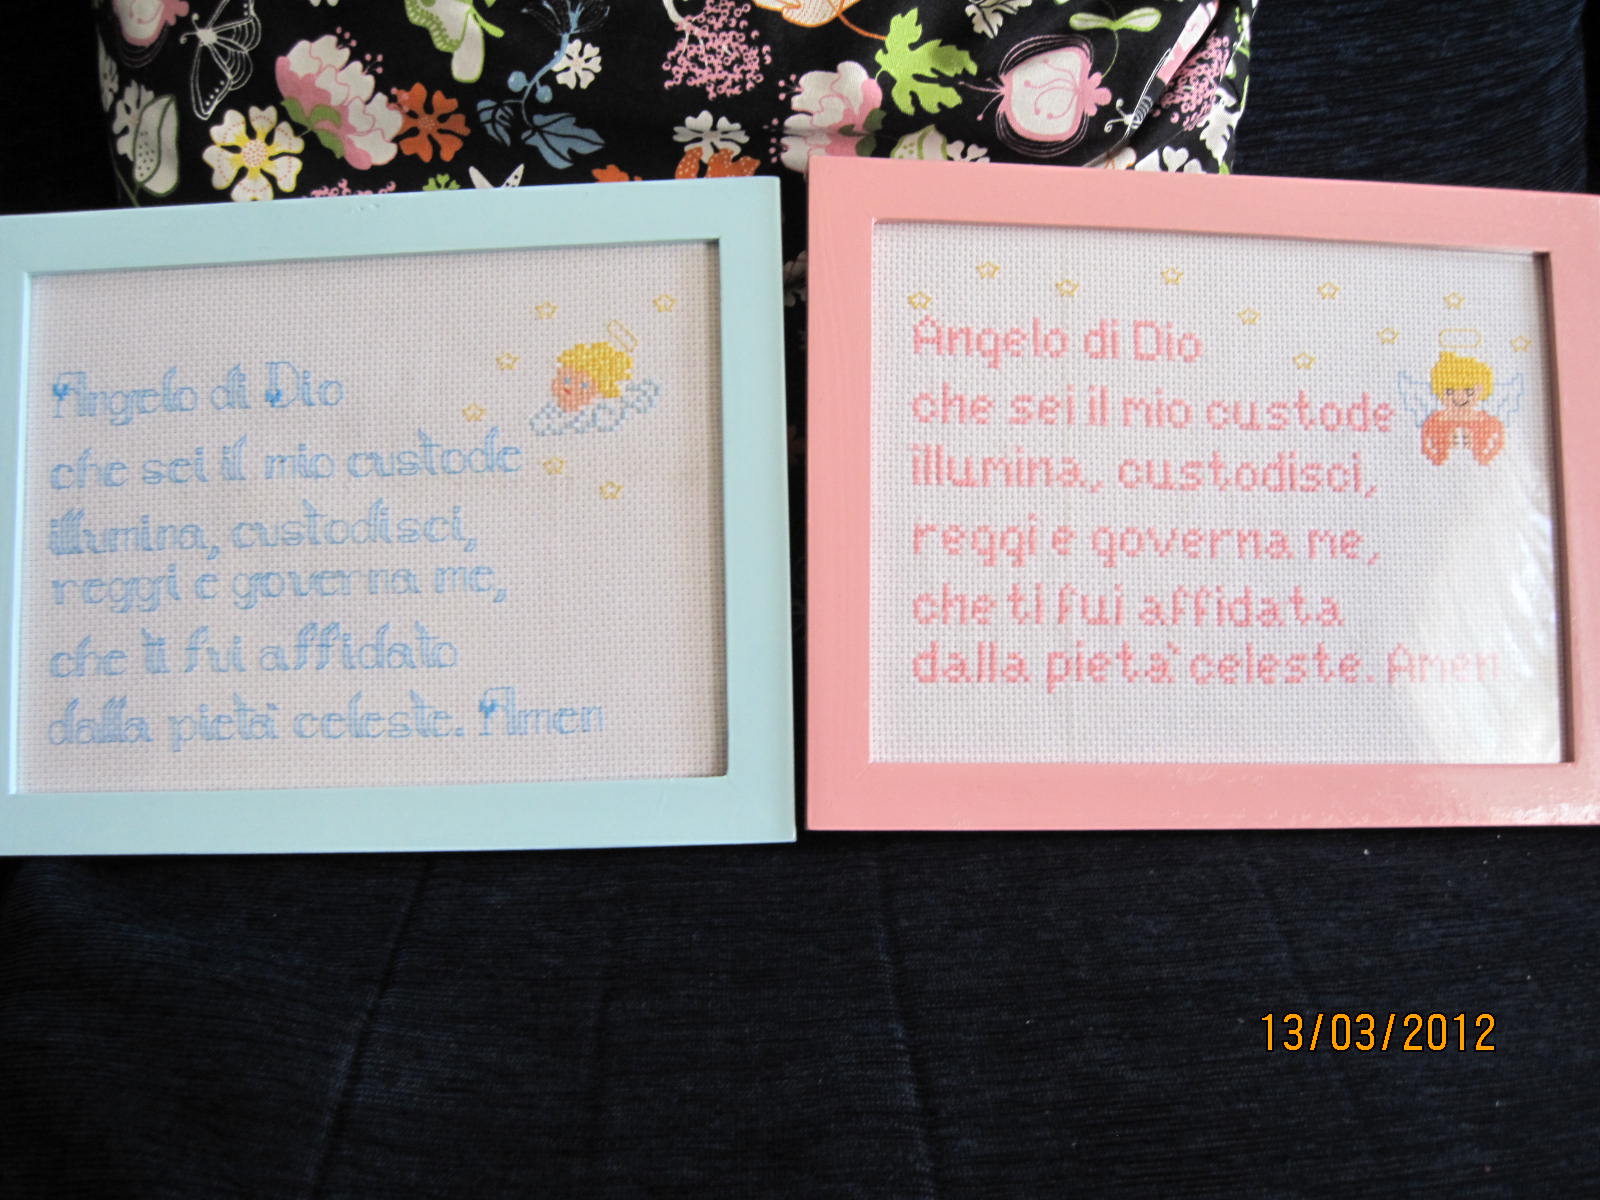 Angelo di Dio
che sei il mio custode
illumina, custodisci,
reggi e governa me,
che ti fui affidato
dalla pieta' celeste. Amen
Angelo di Dio
che sei il mio custode
illumina, custodisci,
reggi e governa me,
che ti fui affidata
dalla pieta' celeste. Amen
13/03/2012